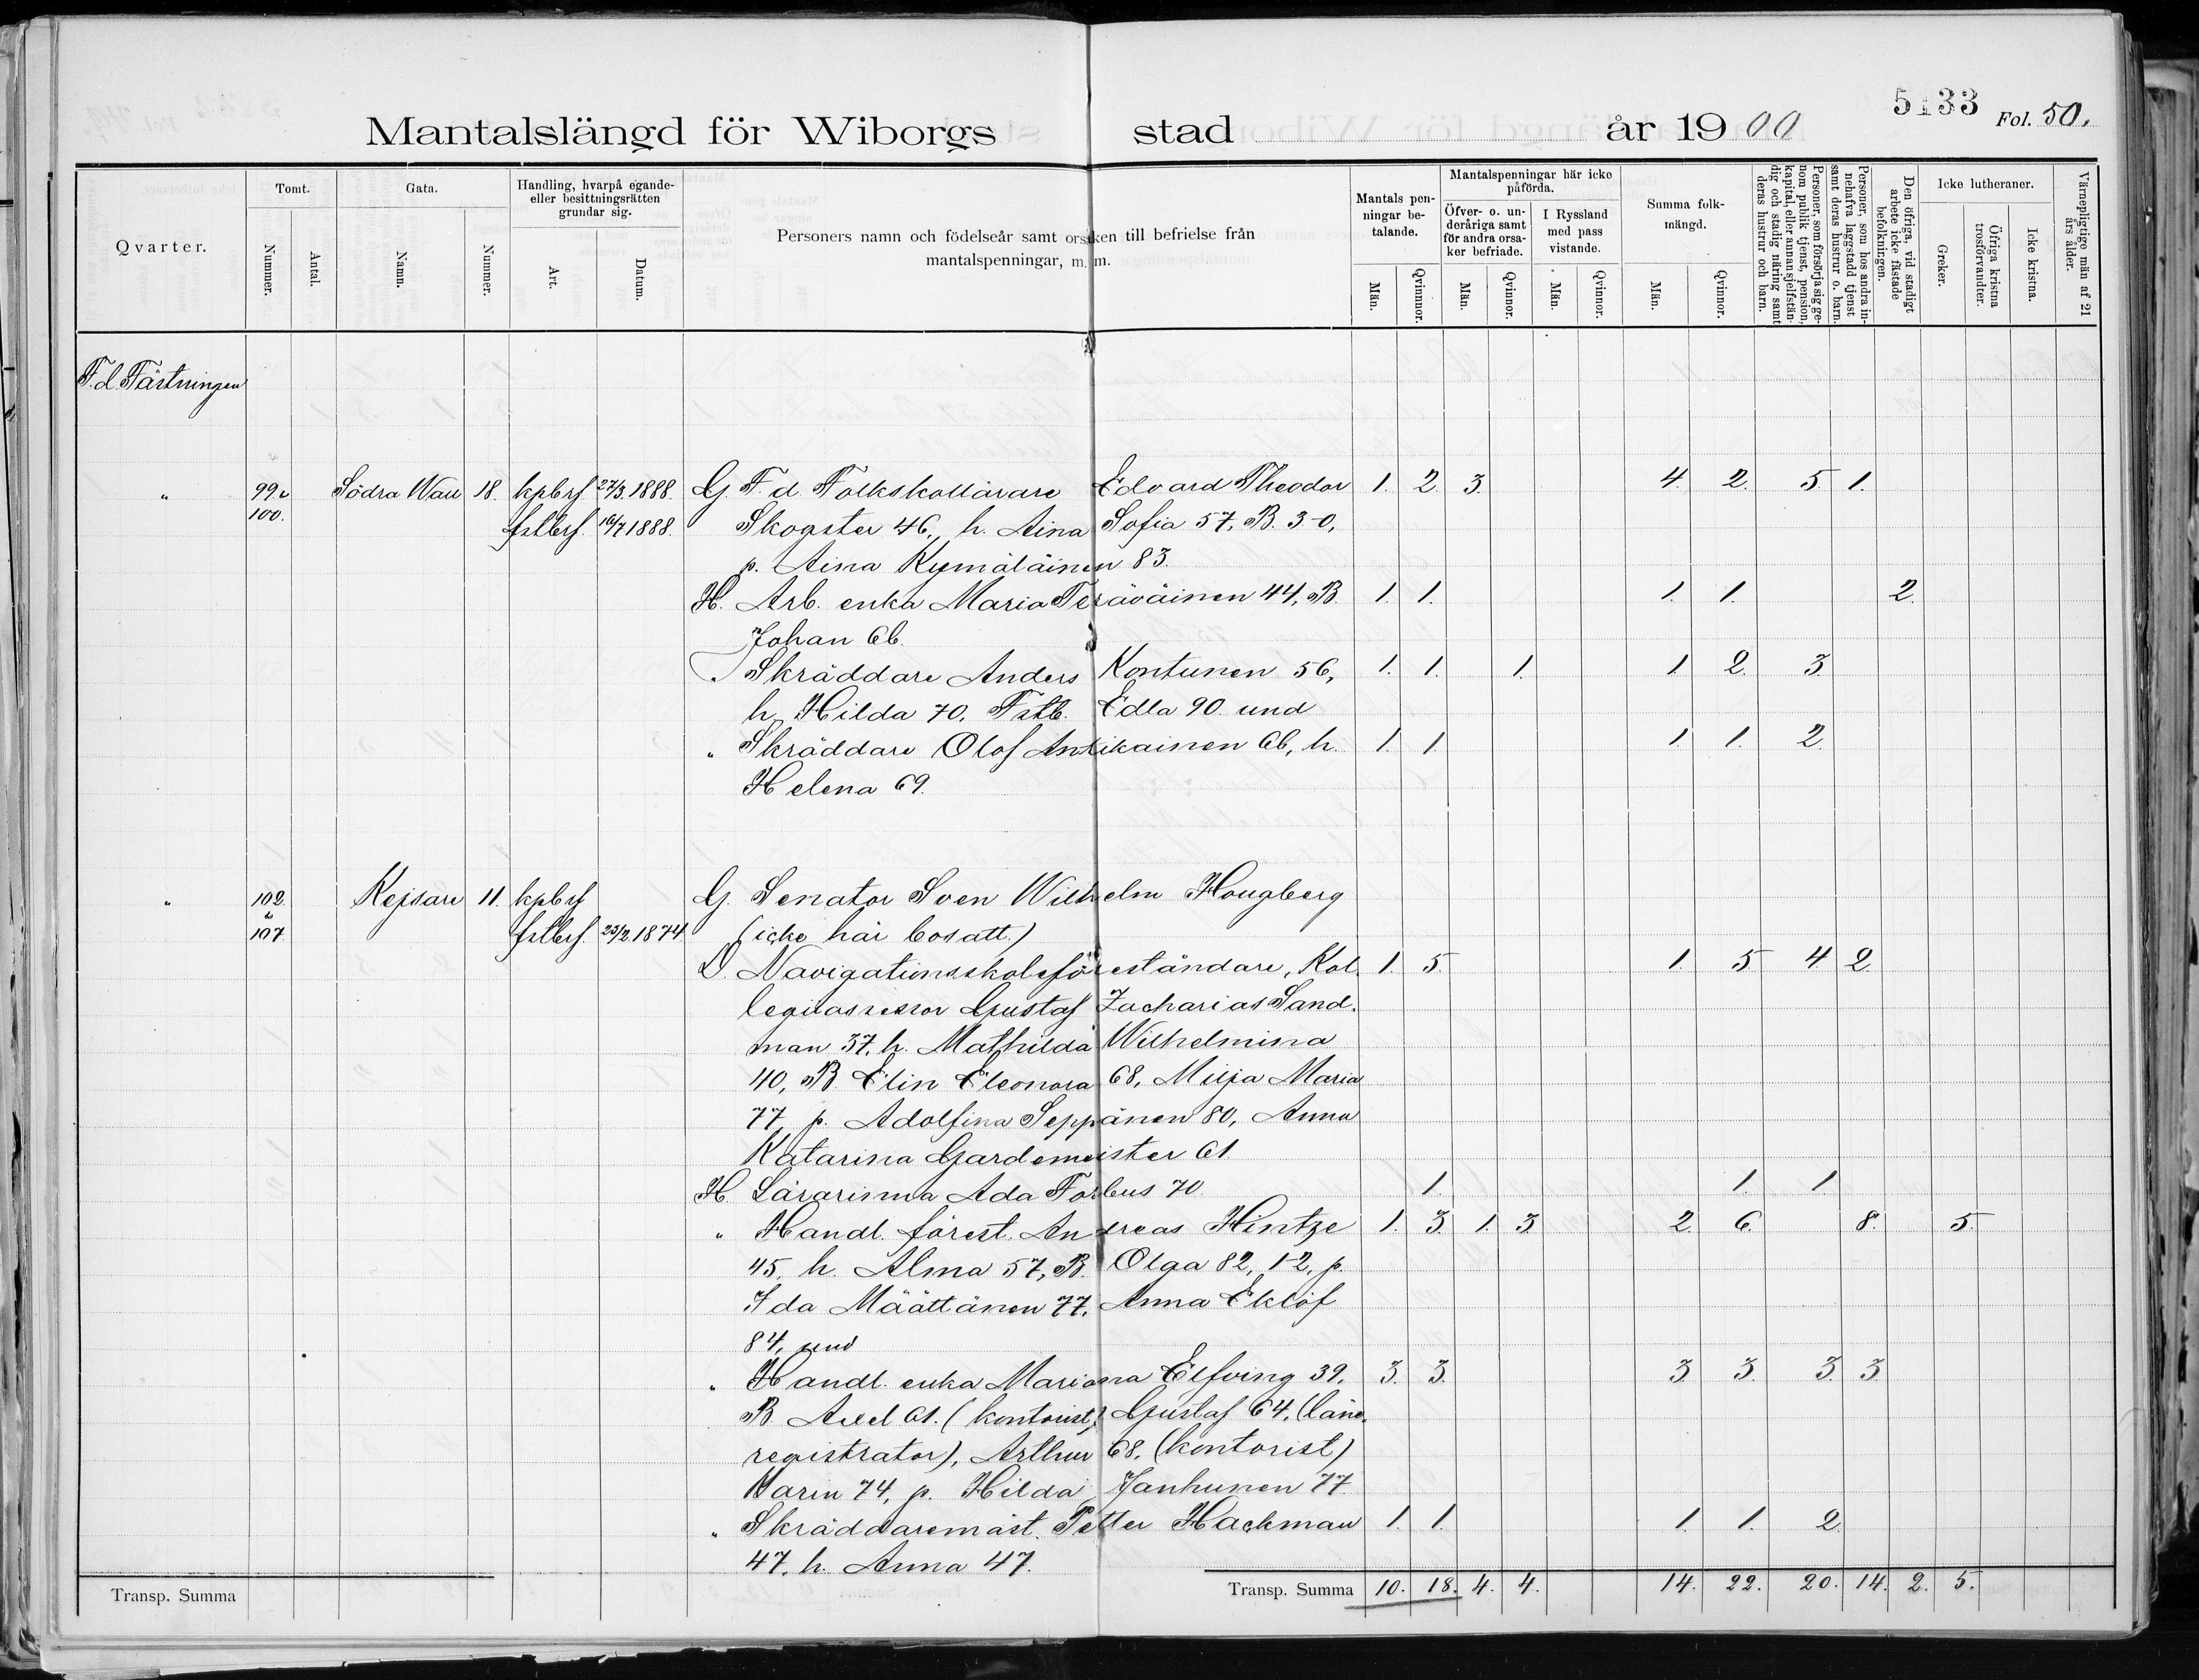 5133
Fol. 50.
Mantalslängd för Wiborgs stad år 1900
Qvarter.
Tomt.
Nummer.
Antal.
Gata.
Namn.
Nummer.
Handling, hvarpå egande-
eller besittningsrätten
grundar sig.
Art.
Datum.
Personers namn och födelseår samt orsaken till befrielse från
mantalspenningar, m. m.
Mantals pen-
ningar be-
talande.
Män.
Qvinnor.
Mantalspenningar här icke
påförda.
Öfver- o. un-
deråriga samt
för andra orsa-
ker befriade.
Män.
Qvinnor.
I Ryssland
med pass
vistande.
Män.
Qvinnor.
Summa folk-
mängd.
Män.
Qvinnor.
Personer, som försörja sig ge-
nom publik tjenst, pension,
kapital, eller annan sjelfstän-
dig och stadig näring samt
deras hustrur och barn.
Personer, som hos andra in-
nehafva laggstadd tjenst
samt deras hustrur o. barn.
Den öfriga, vid stadigt
arbete icke fästade
befolkningen.
Icke lutheraner.
Greker.
Öfriga kristna
trosförvandter.
Icke kristna.
Värnepligtige män af 21
års ålder.
F.d. Fästningen
" 99 o Södra Wall 18. kpbrf 27/3.1888. G. F. d. Folkskollärare Edvard Theodor 1. 2. 3. 4. 2. 5. 1.
100. fstbrf. 16/7 1888. Skogster 46, h. Aina Sofia 57, B. 3-0,
p. Aina Kymäläinen 83.
H. Arb. enka Maria Teräväinen 44, B. 1. 1. 1. 1. 2.
Johan 66.
" Skräddare Anders Kontunen 56, 1. 1. 1. 1. 2. 3.
h. Hilda 70. Fstb. Edla 90 und
" Skräddare Olof Antikainen 66, h. 1. 1. 1. 1. 2.
Helena 69.
" 102. Kejsare 11. kpbrf G. Senator Sven Wilhelm Hougberg
"
107 fstbrf. 23/2.1874 (icke här bosatt.)
D. Navigationsskoleföreståndare, Kol. 1. 5. 1. 5. 4. 2.
legiiassessor Gustaf Zacharias Sand.
man 37, h. Mathilda Wilhelmina
40, B Elin Eleonora 68, Milja Maria
77, p. Adolfina Seppänen 80, Anna
Katarina Gardemeister 61
H. Lärarinna Ada Forbus 70. 1. 1. 1.
" Handl. förest. Andreas Hintze 1. 3. 1. 3. 2. 6. 8. 5.
45, h. Alma 57, B. Olga 82, 1-2, p.
Ida Määttänen 77, Anna Eklöf
84, und
" Handl. enka Mariana Elfving 39, 3. 3. 3. 3. 3. 3.
B. Axel 61. (kontorist), Gustaf 64, (läns.
registrator), Arthur 68, (kontorist)
Karin 74, p. Hilda Janhunen 77.
" Skräddaremäst. Petter Hackman 1. 1. 1. 1. 2.
47, h. Anna 47.
Transp. Summa Transp. Summa 10. 18. 4. 4. 14. 22. 20. 14. 2. 5.